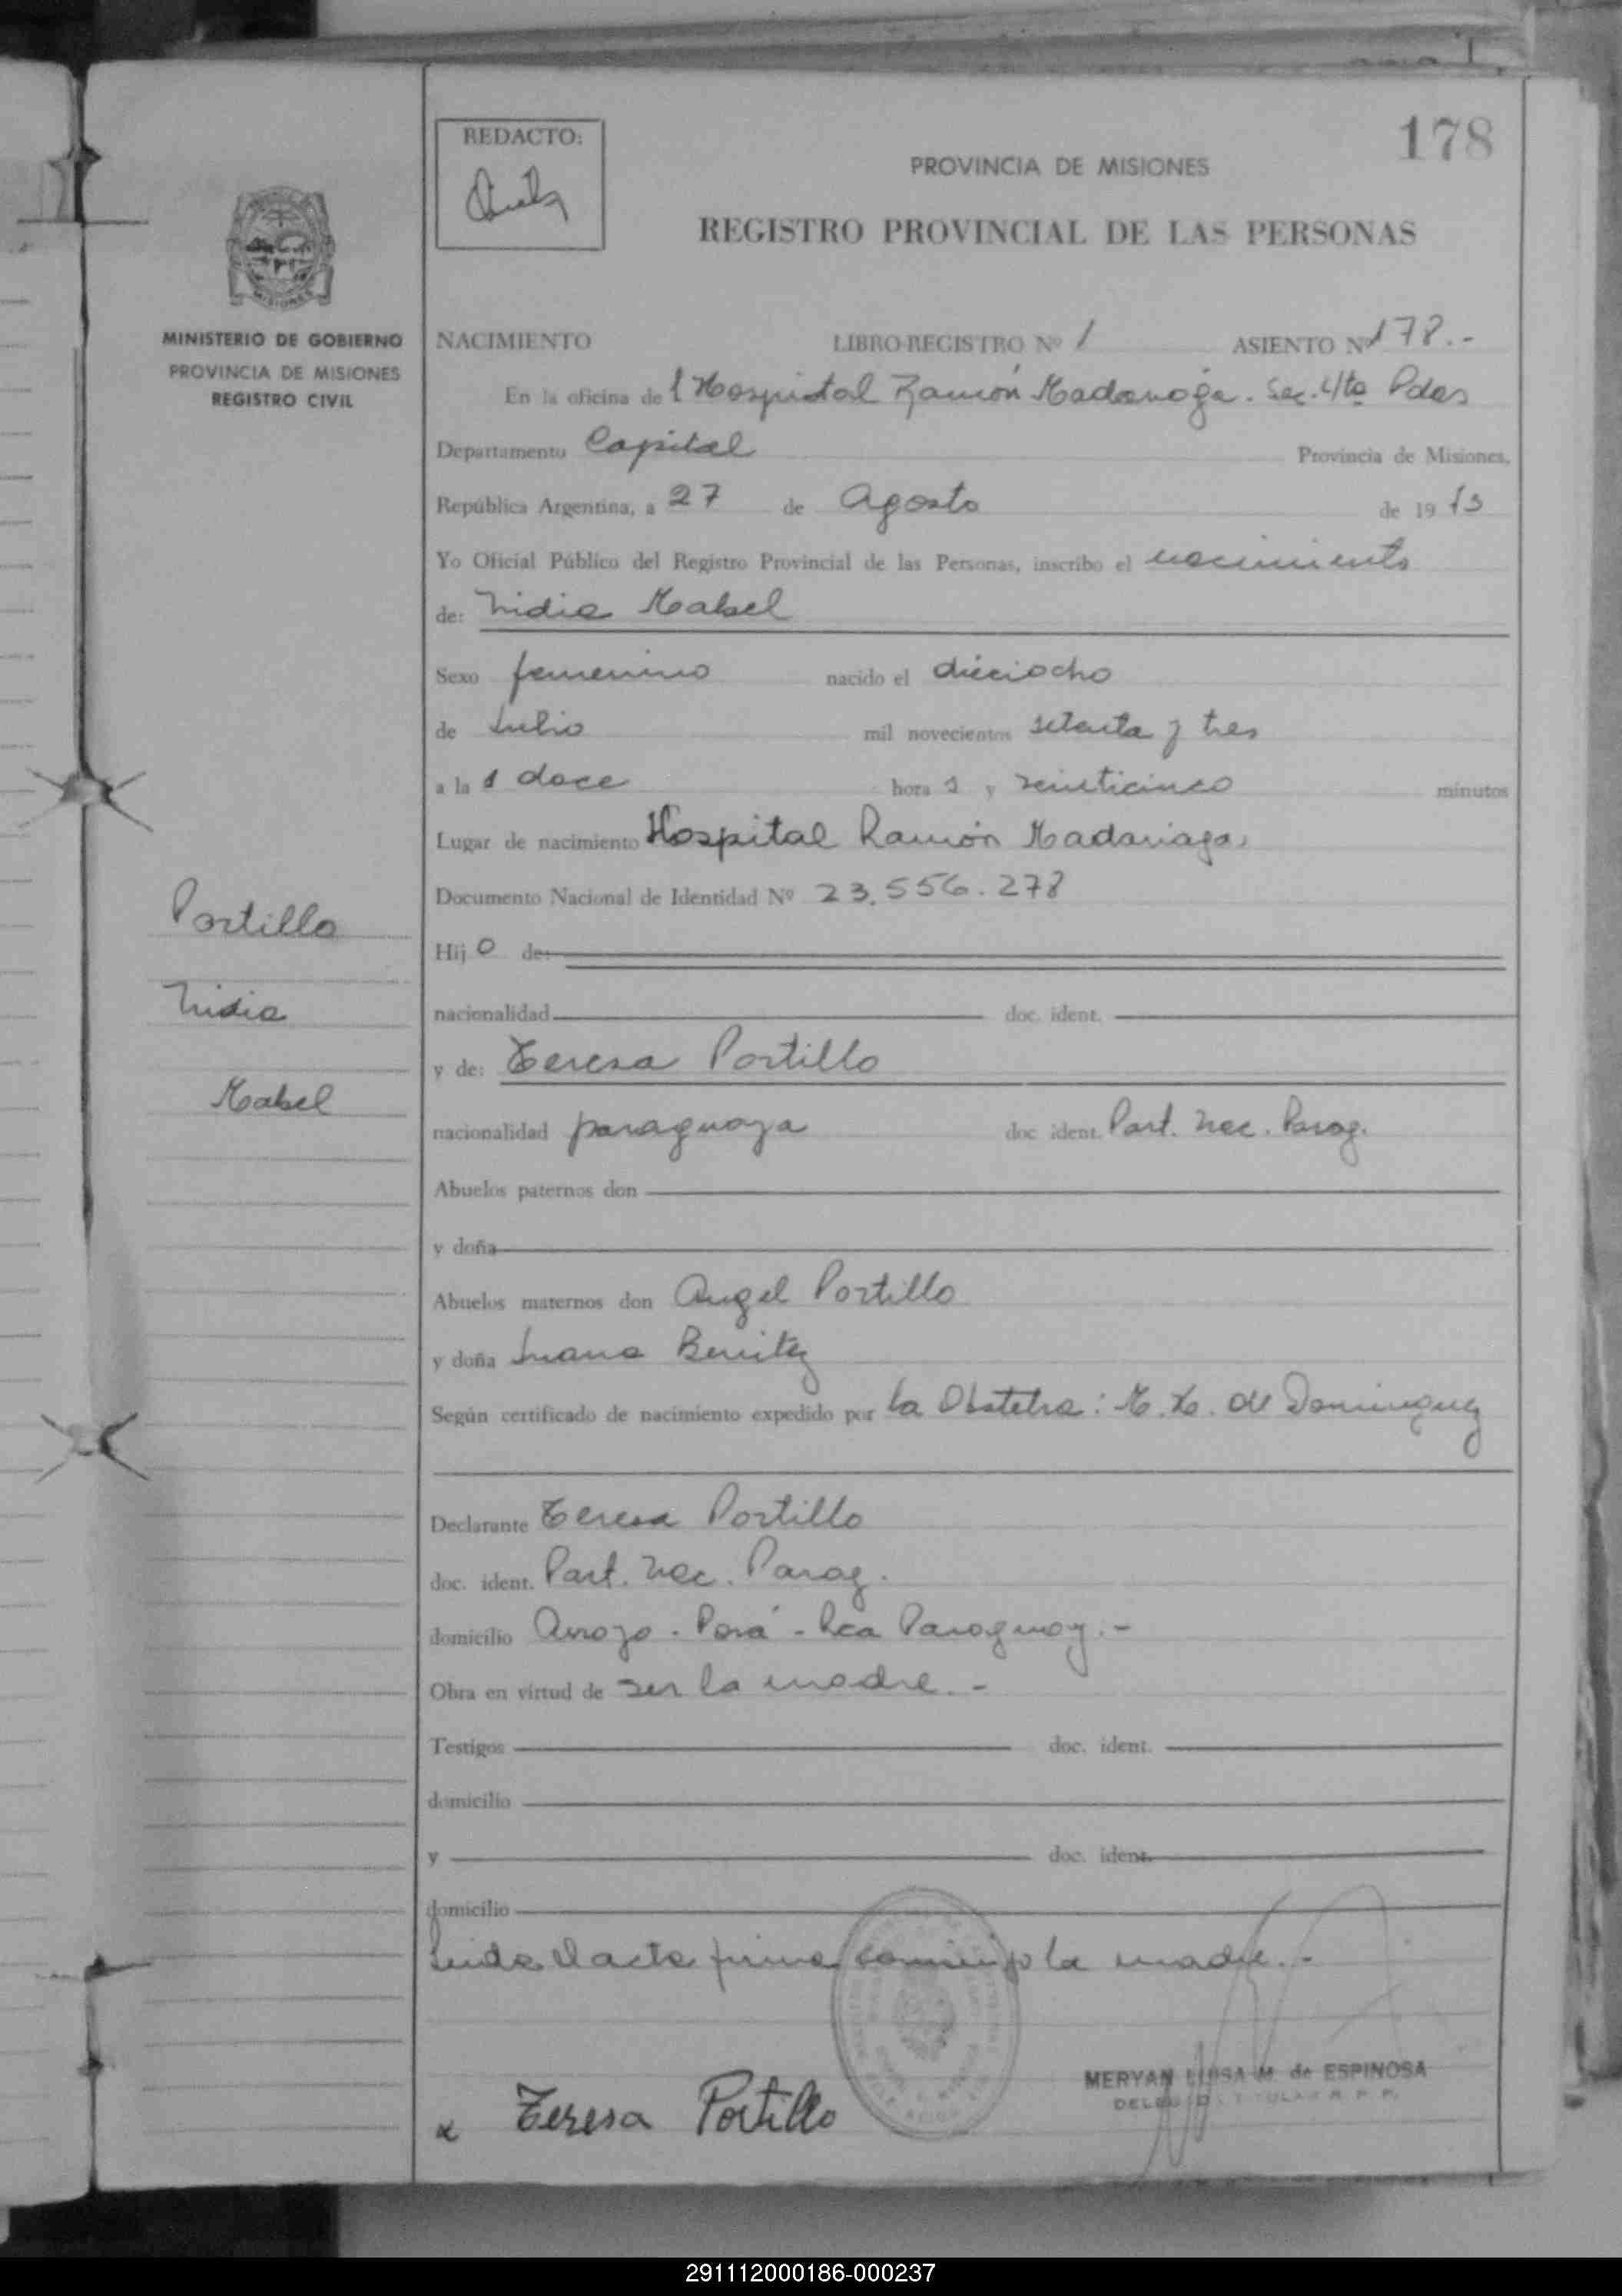 178
REDACTO:
PROVINCIA DE MISIONES
REGISTRO PROVINCIAL DE LAS PERSONAS
MISIONES
MINISTERIO DE GOBIERNO
PROVINCIA DE MISIONES
REGISTRO CIVIL
NACIMIENTO LIBRO-REGISTRO Nº 1 ASIENTO Nº 178.-
En la oficina del Hospital Ramón Madariaga. Sec. 4/ta Pdas
Departamento Capital Provincia de Misiones,
República Argentina, a 27 de Agosto de 1973
Yo Oficial Público del Registro Provincial de las Personas, inscribo el nacimiento
de: Nidia Mabel
Sexo femenino nacido el dieciocho
de Julio mil novecientos setenta y tres
a las doce horas y veinticinco minutos
Lugar de nacimiento Hospital Ramón Madariaga.
Documento Nacional de Identidad Nº 23.556.278
Portillo
Nidia
Mabel
Hijo de:
nacionalidad doc. ident.
y de: Teresa Portillo
nacionalidad paraguaya doc ident. Part. Nac. Parag.
Abuelos paternos don
y doña
Abuelos maternos don Angel Portillo
y doña Juana Benitez
Según certificado de nacimiento expedido por la Obstetra: M. M. de Dominguez
Declarante Teresa Portillo
doc. ident. Part. Nac. Parag.
domicilio Arroyo - Porá - Rca Paraguay.-
Obra en virtud de ser la madre.-
Testigos doc. ident.
domicilio
y doc. ident.
domicilio
Leida el acta firma conmigo la madre.-
x Teresa Portillo
MERYAN LUISA M. de ESPINOSA
291112000186-000237